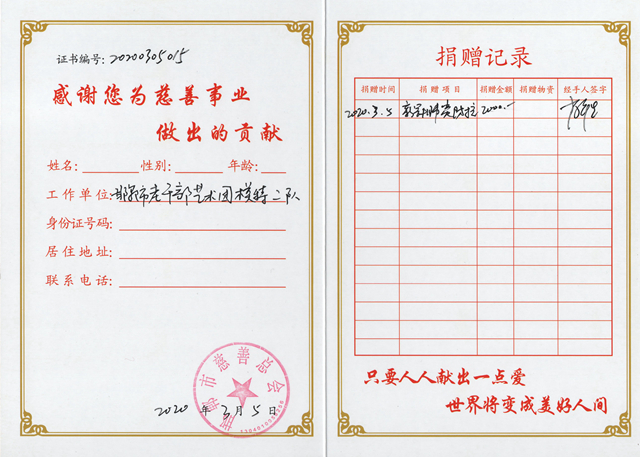 证书编号: 20200305015
感谢您为慈善事业
做出的贡献
姓名: 性别: 年龄:
工作单位: 邯郸市老干部艺术团模特二队
身份证号码:
居住地址:
联系电话:
邯郸市慈善总会
2020 年 3 月 5 日
捐赠记录
捐赠时间 捐赠项目 捐赠金额 捐赠物资 经手人签字
2020.3.5 2000.-
只要人人献出一点爱
世界将变成美好人间